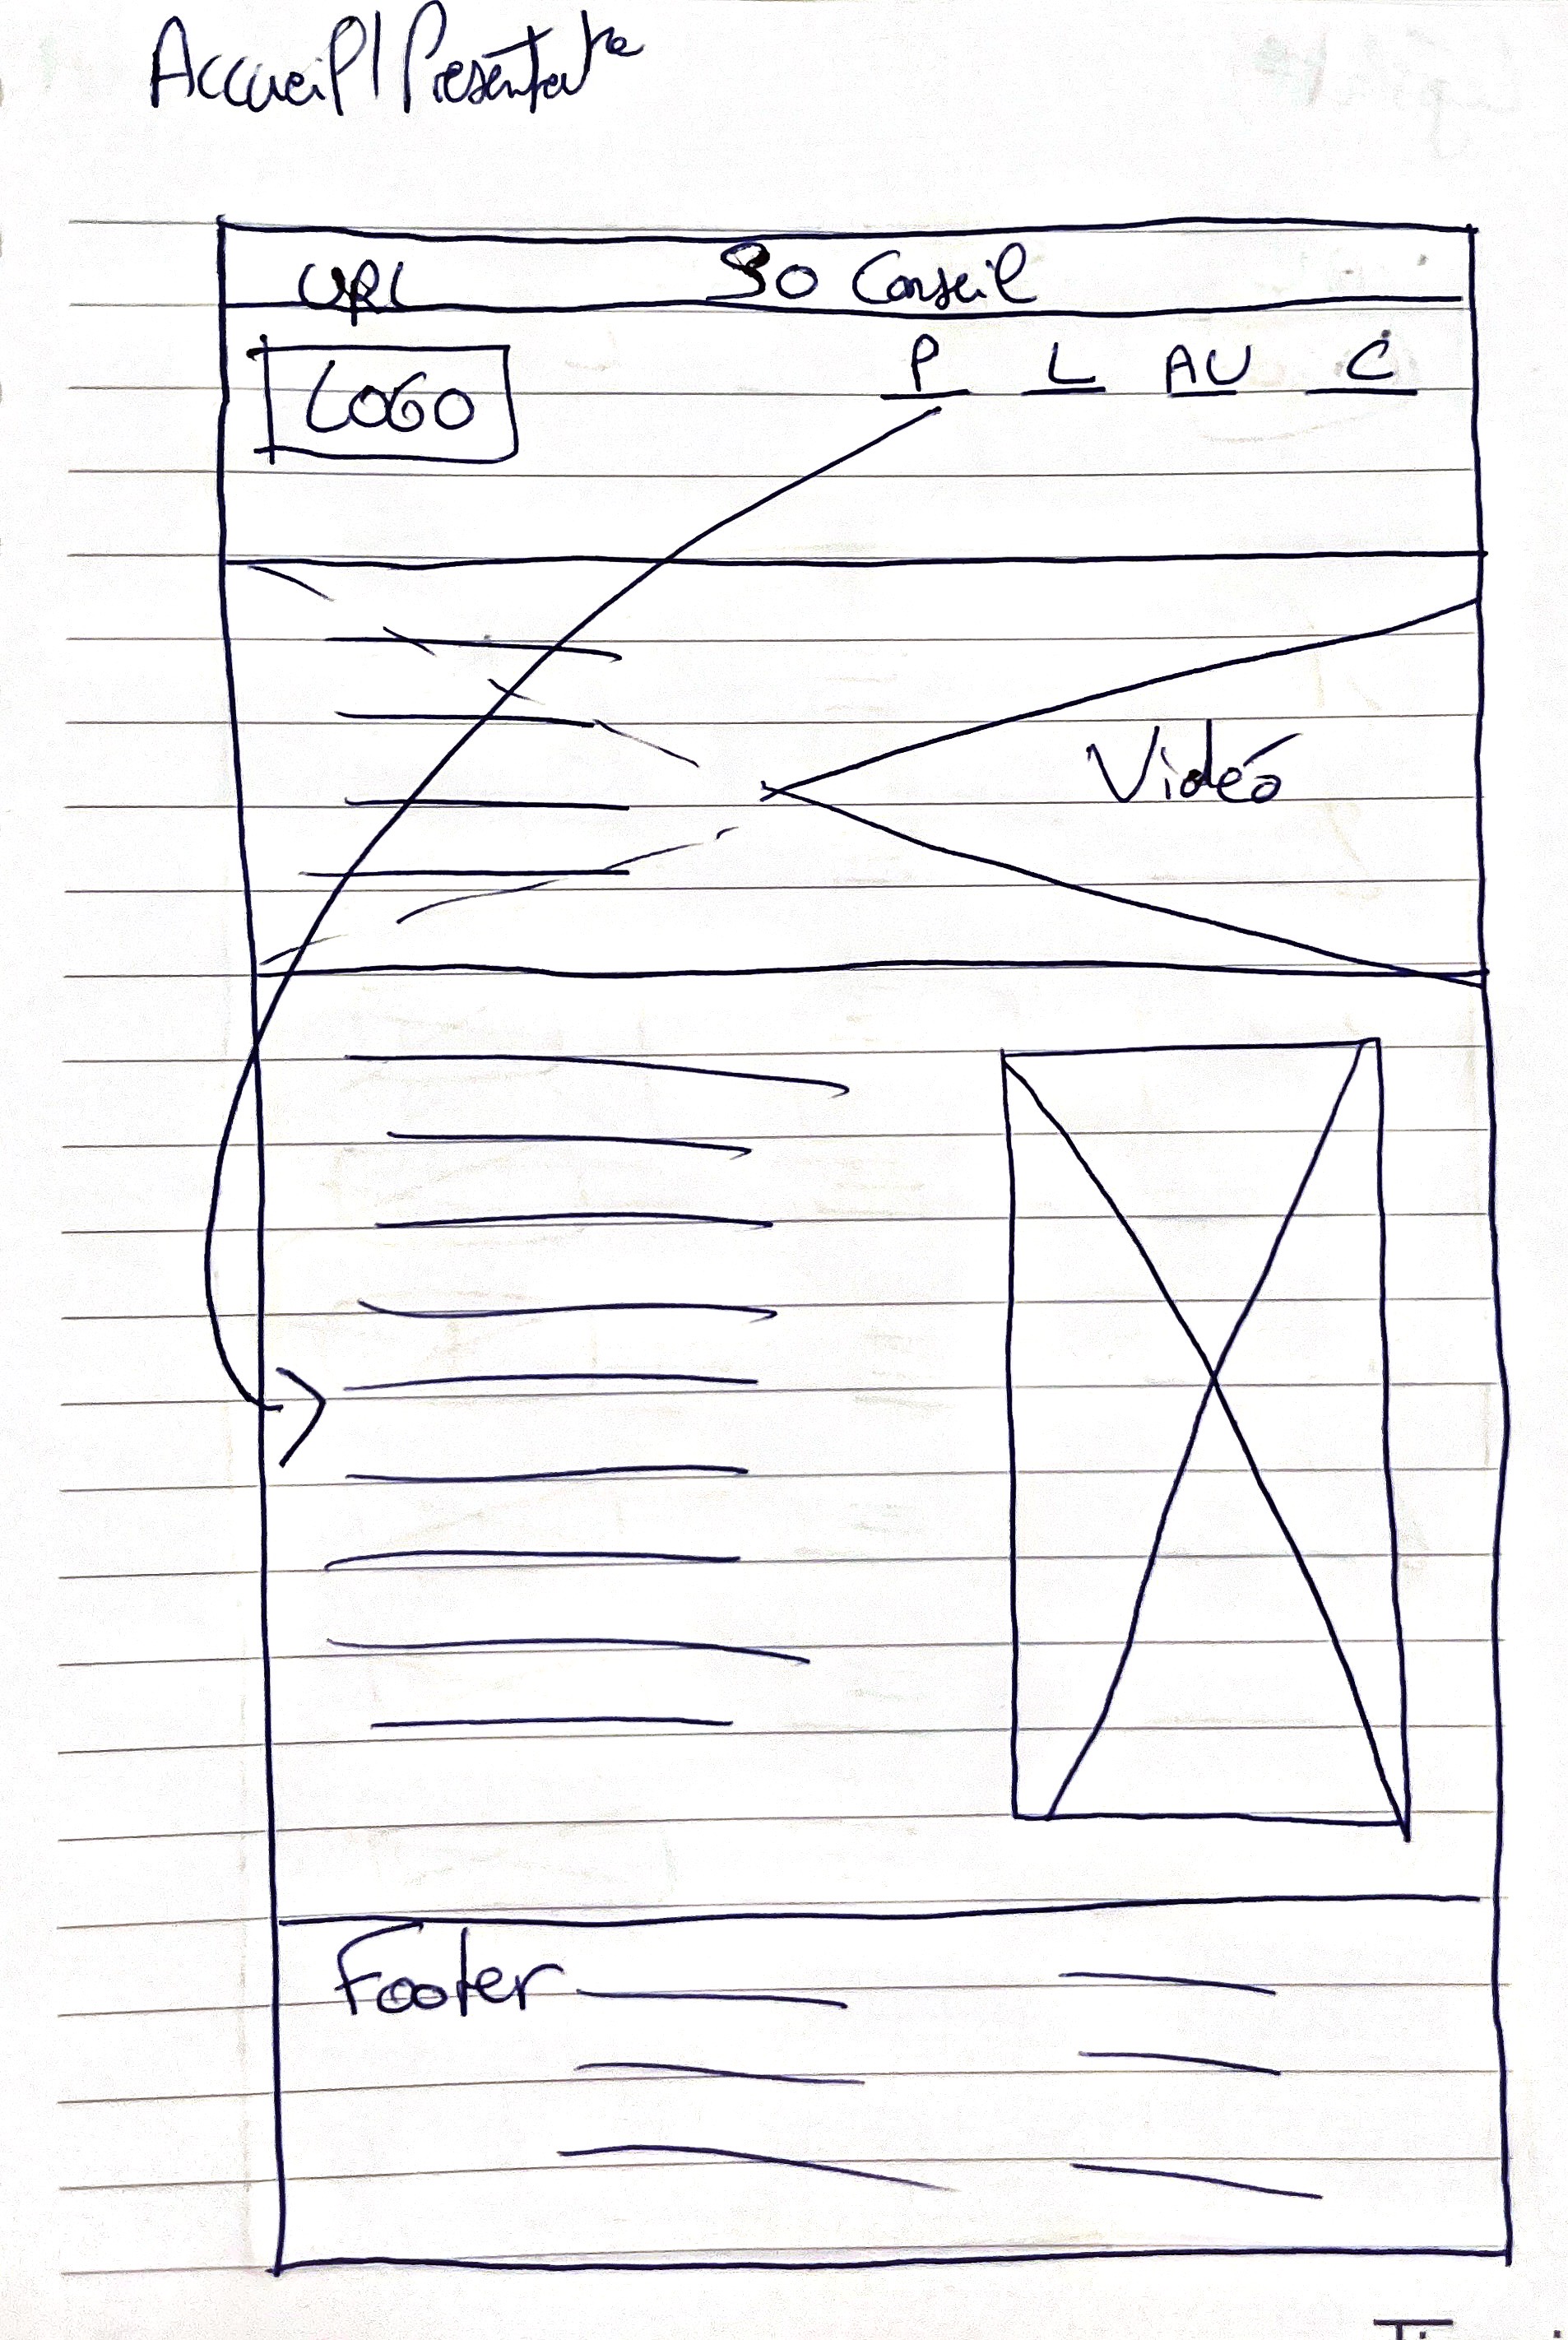 Accueil / Présentat°
URL SO Conseil
LOGO P L AU C
Vidéo
Footer